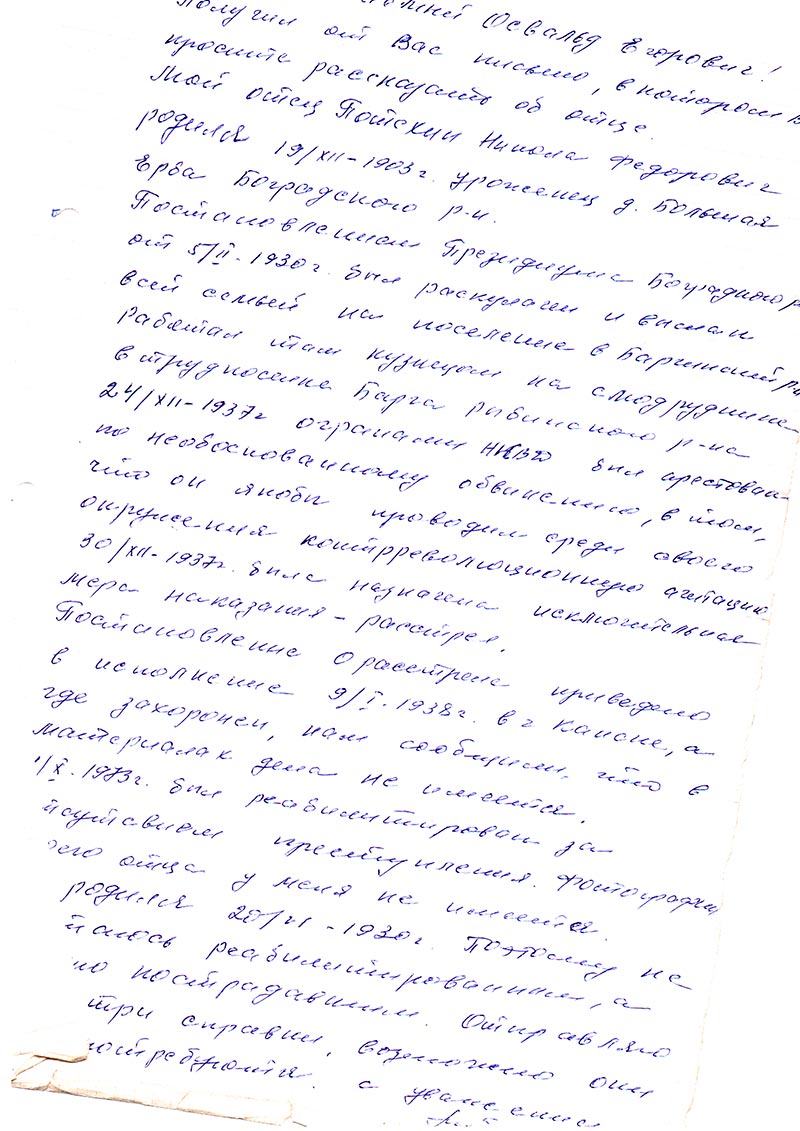 Освальд Егорович!
Получил от Вас письмо, в котором В
просите рассказать об отце.
Мой отец Потехин Никола Федорович
родился 19/XII-1903г. уроженец д. Большая
Ерба Боградского р-н.
Постановлением Президиума Боградского р
от 5/II-1930г. был раскулачен и выслан
всей семьей на поселение в Баргинский р-н
работал там кузнецом на слюдруднике
в трудпоселке Барга рыбинского р-на
24/XII-1937г органами НКВД был арестован
по необоснованному обвинению, в том,
что он якобы проводил среди своего
окружения контрреволюционную агитацию
30/XII-1937г. была назначена исключительная
мера наказания - расстрел.
Постановление о расстреле приведено
в исполнение 9/I-1938г. в г Канске, а
где захоронен, нам сообщили, что в
материалах дела не имеется.
1/X-1973г. был реабилитирован за
отсутствием преступления. Фотографии
отца у меня не имеется.
родился 20/VI-1930г. Поэтому не
реабилитированным, а
но пострадавшим. Отправляю
три справки, возможно они
потребуются. с уважением